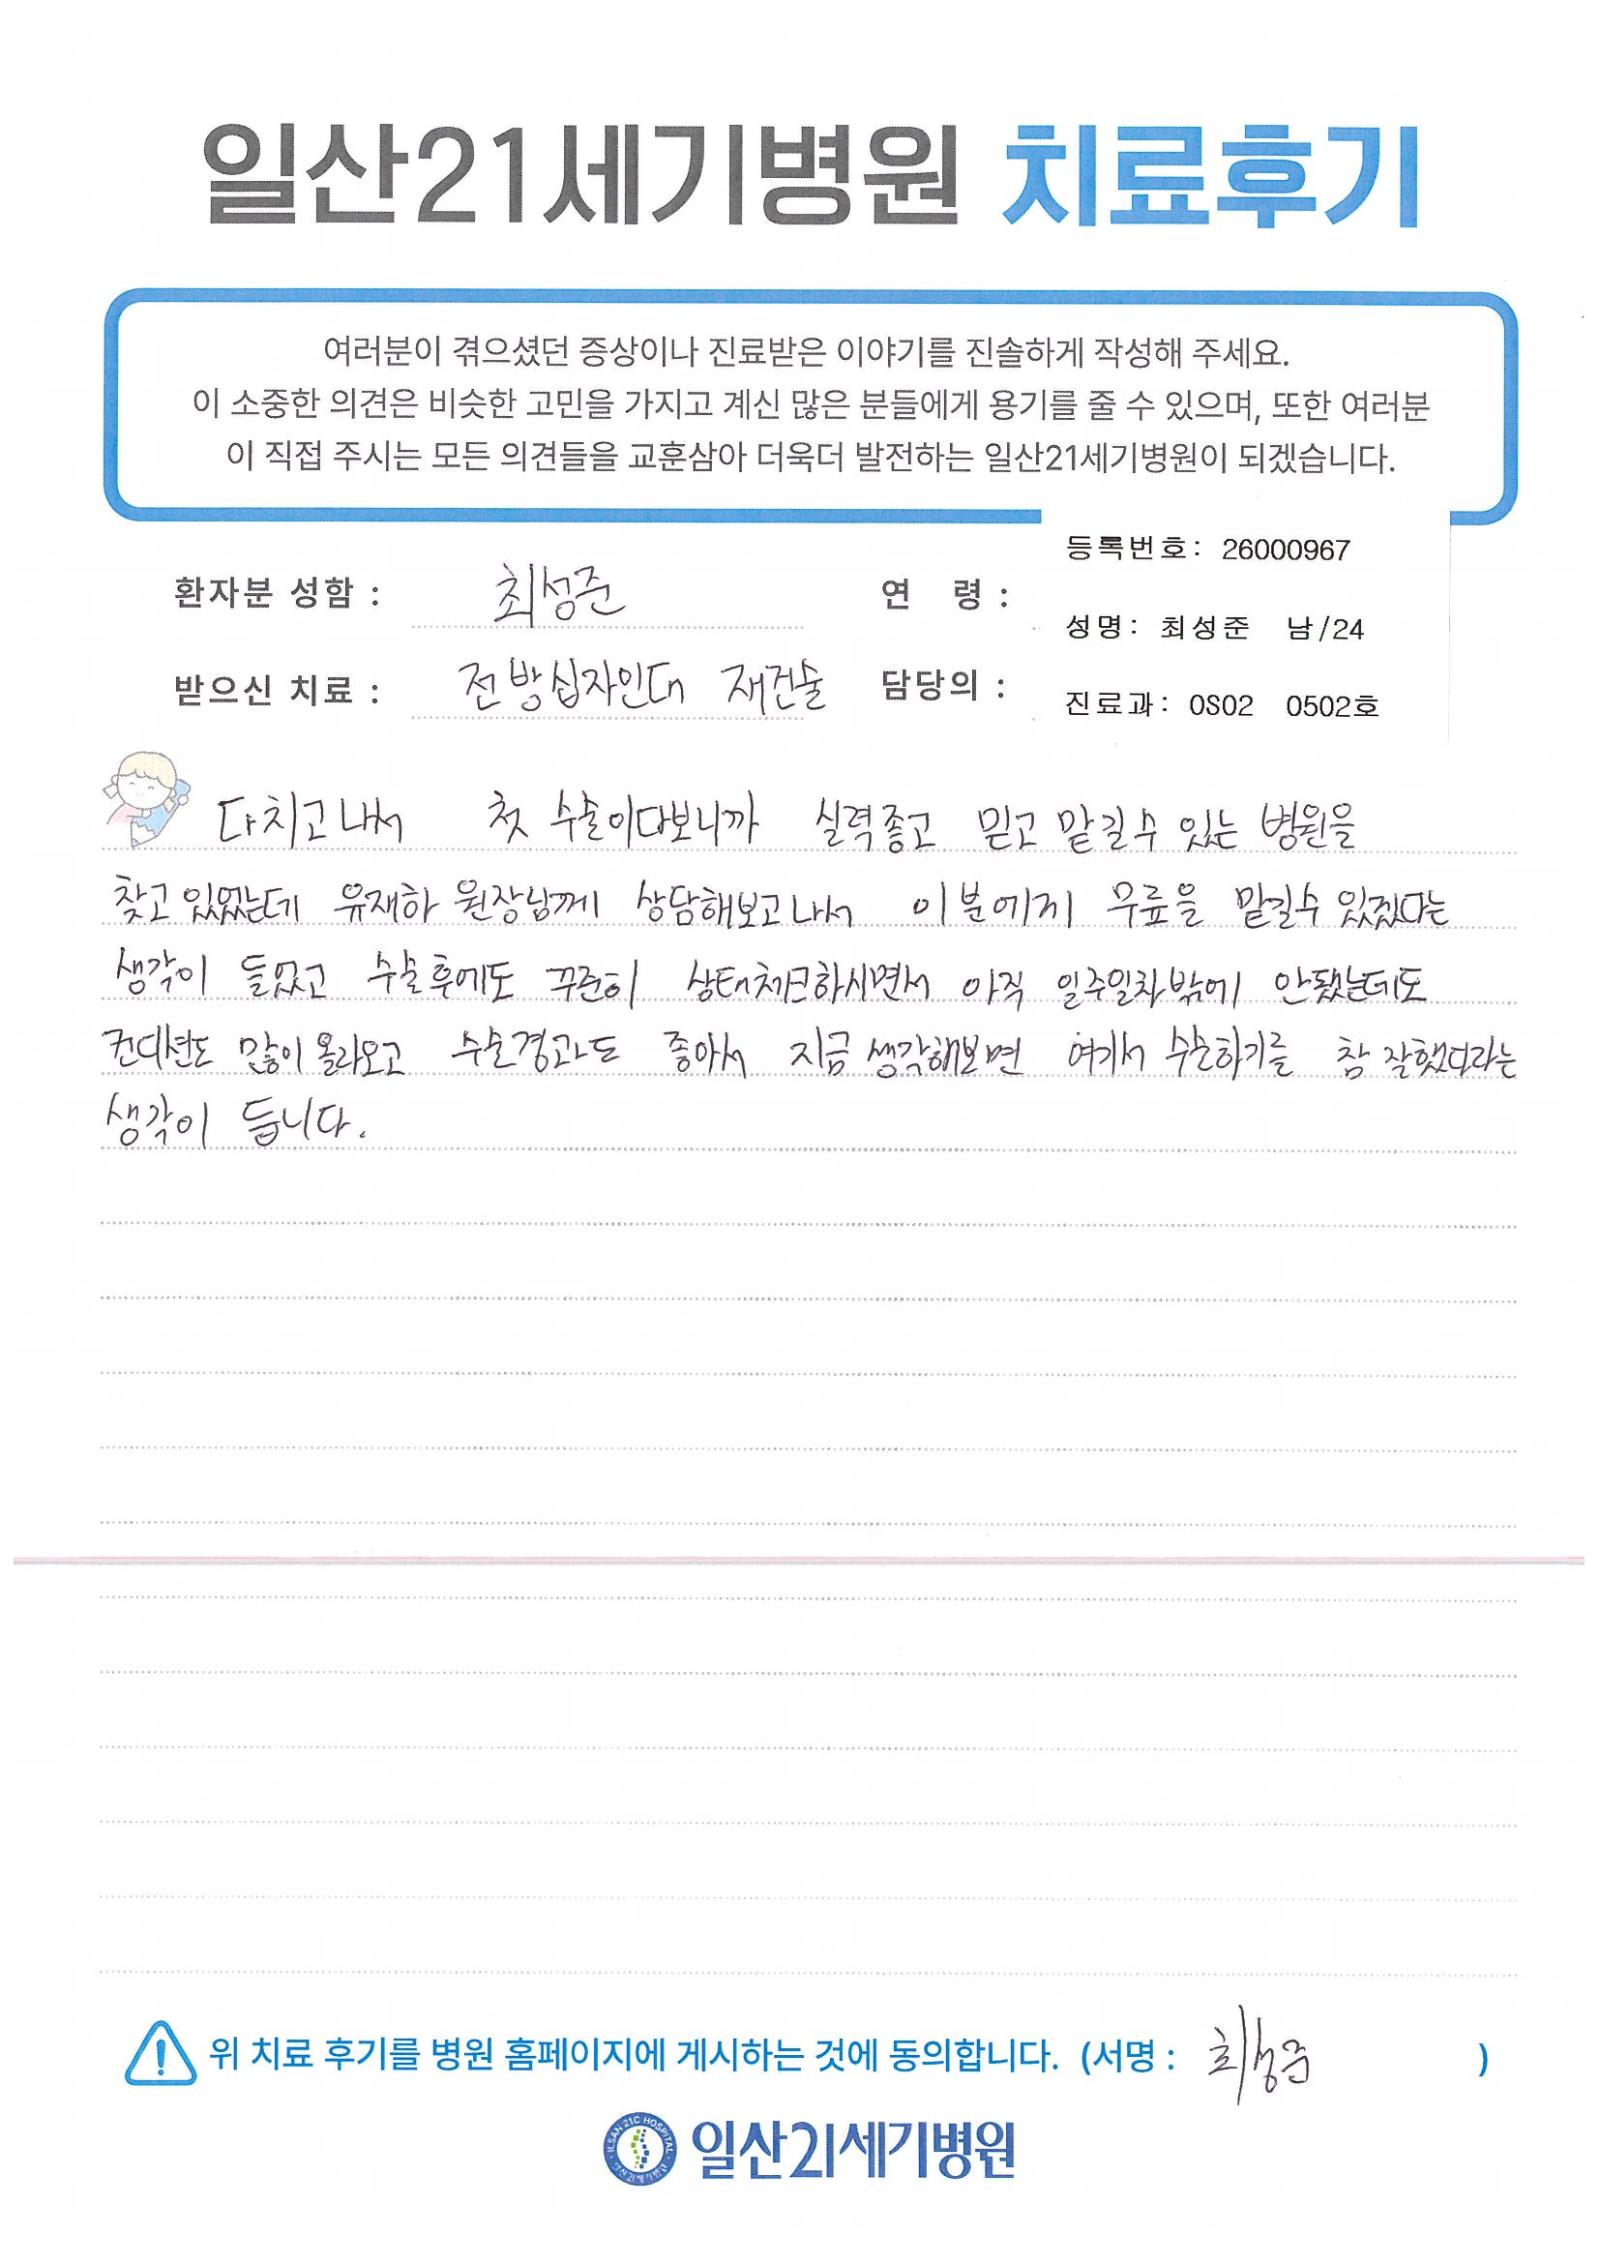 일산21세기병원 치료후기
여러분이 겪으셨던 증상이나 진료받은 이야기를 진솔하게 작성해 주세요.
이 소중한 의견은 비슷한 고민을 가지고 계신 많은 분들에게 용기를 줄 수 있으며, 또한 여러분
이 직접 주시는 모든 의견들을 교훈삼아 더욱더 발전하는 일산21세기병원이 되겠습니다.
등록번호: 26000967
환자분 성함 : 최성준 연 령 :
성명: 최성준 남/24
받으신 치료 : 전방십자인대 재건술 담당의 :
진료과: OS02 0502호
다치고나서 첫 수술이다보니까 실력좋고 믿고 맡길수 있는 병원을
찾고있었는데 유재하 원장님께 상담해보고나서 이분에게 무릎을 맡길수있겠다는
생각이 들었고 수술후에도 꾸준히 상태체크하시면서 아직 일주일차밖에 안됐는데도
컨디션도 많이올라오고 수술경과도 좋아서 지금생각해보면 여기서 수술하기를 참 잘했다라는
생각이 듭니다.
위 치료 후기를 병원 홈페이지에 게시하는 것에 동의합니다. (서명 : 최성준 )
ILSAN 21C HOSPITAL
일산21세기병원
일산21세기병원